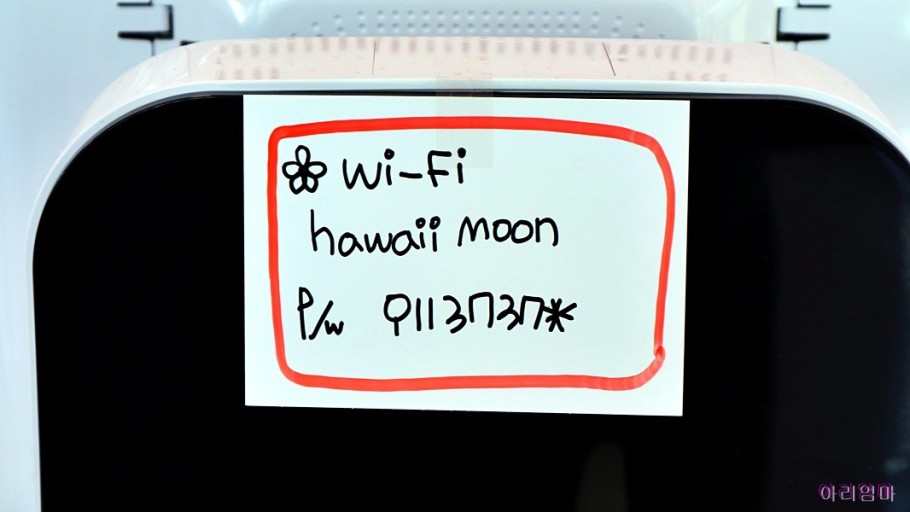 Wi-Fi
hawaii moon
P/w 9113737*
아리엄마